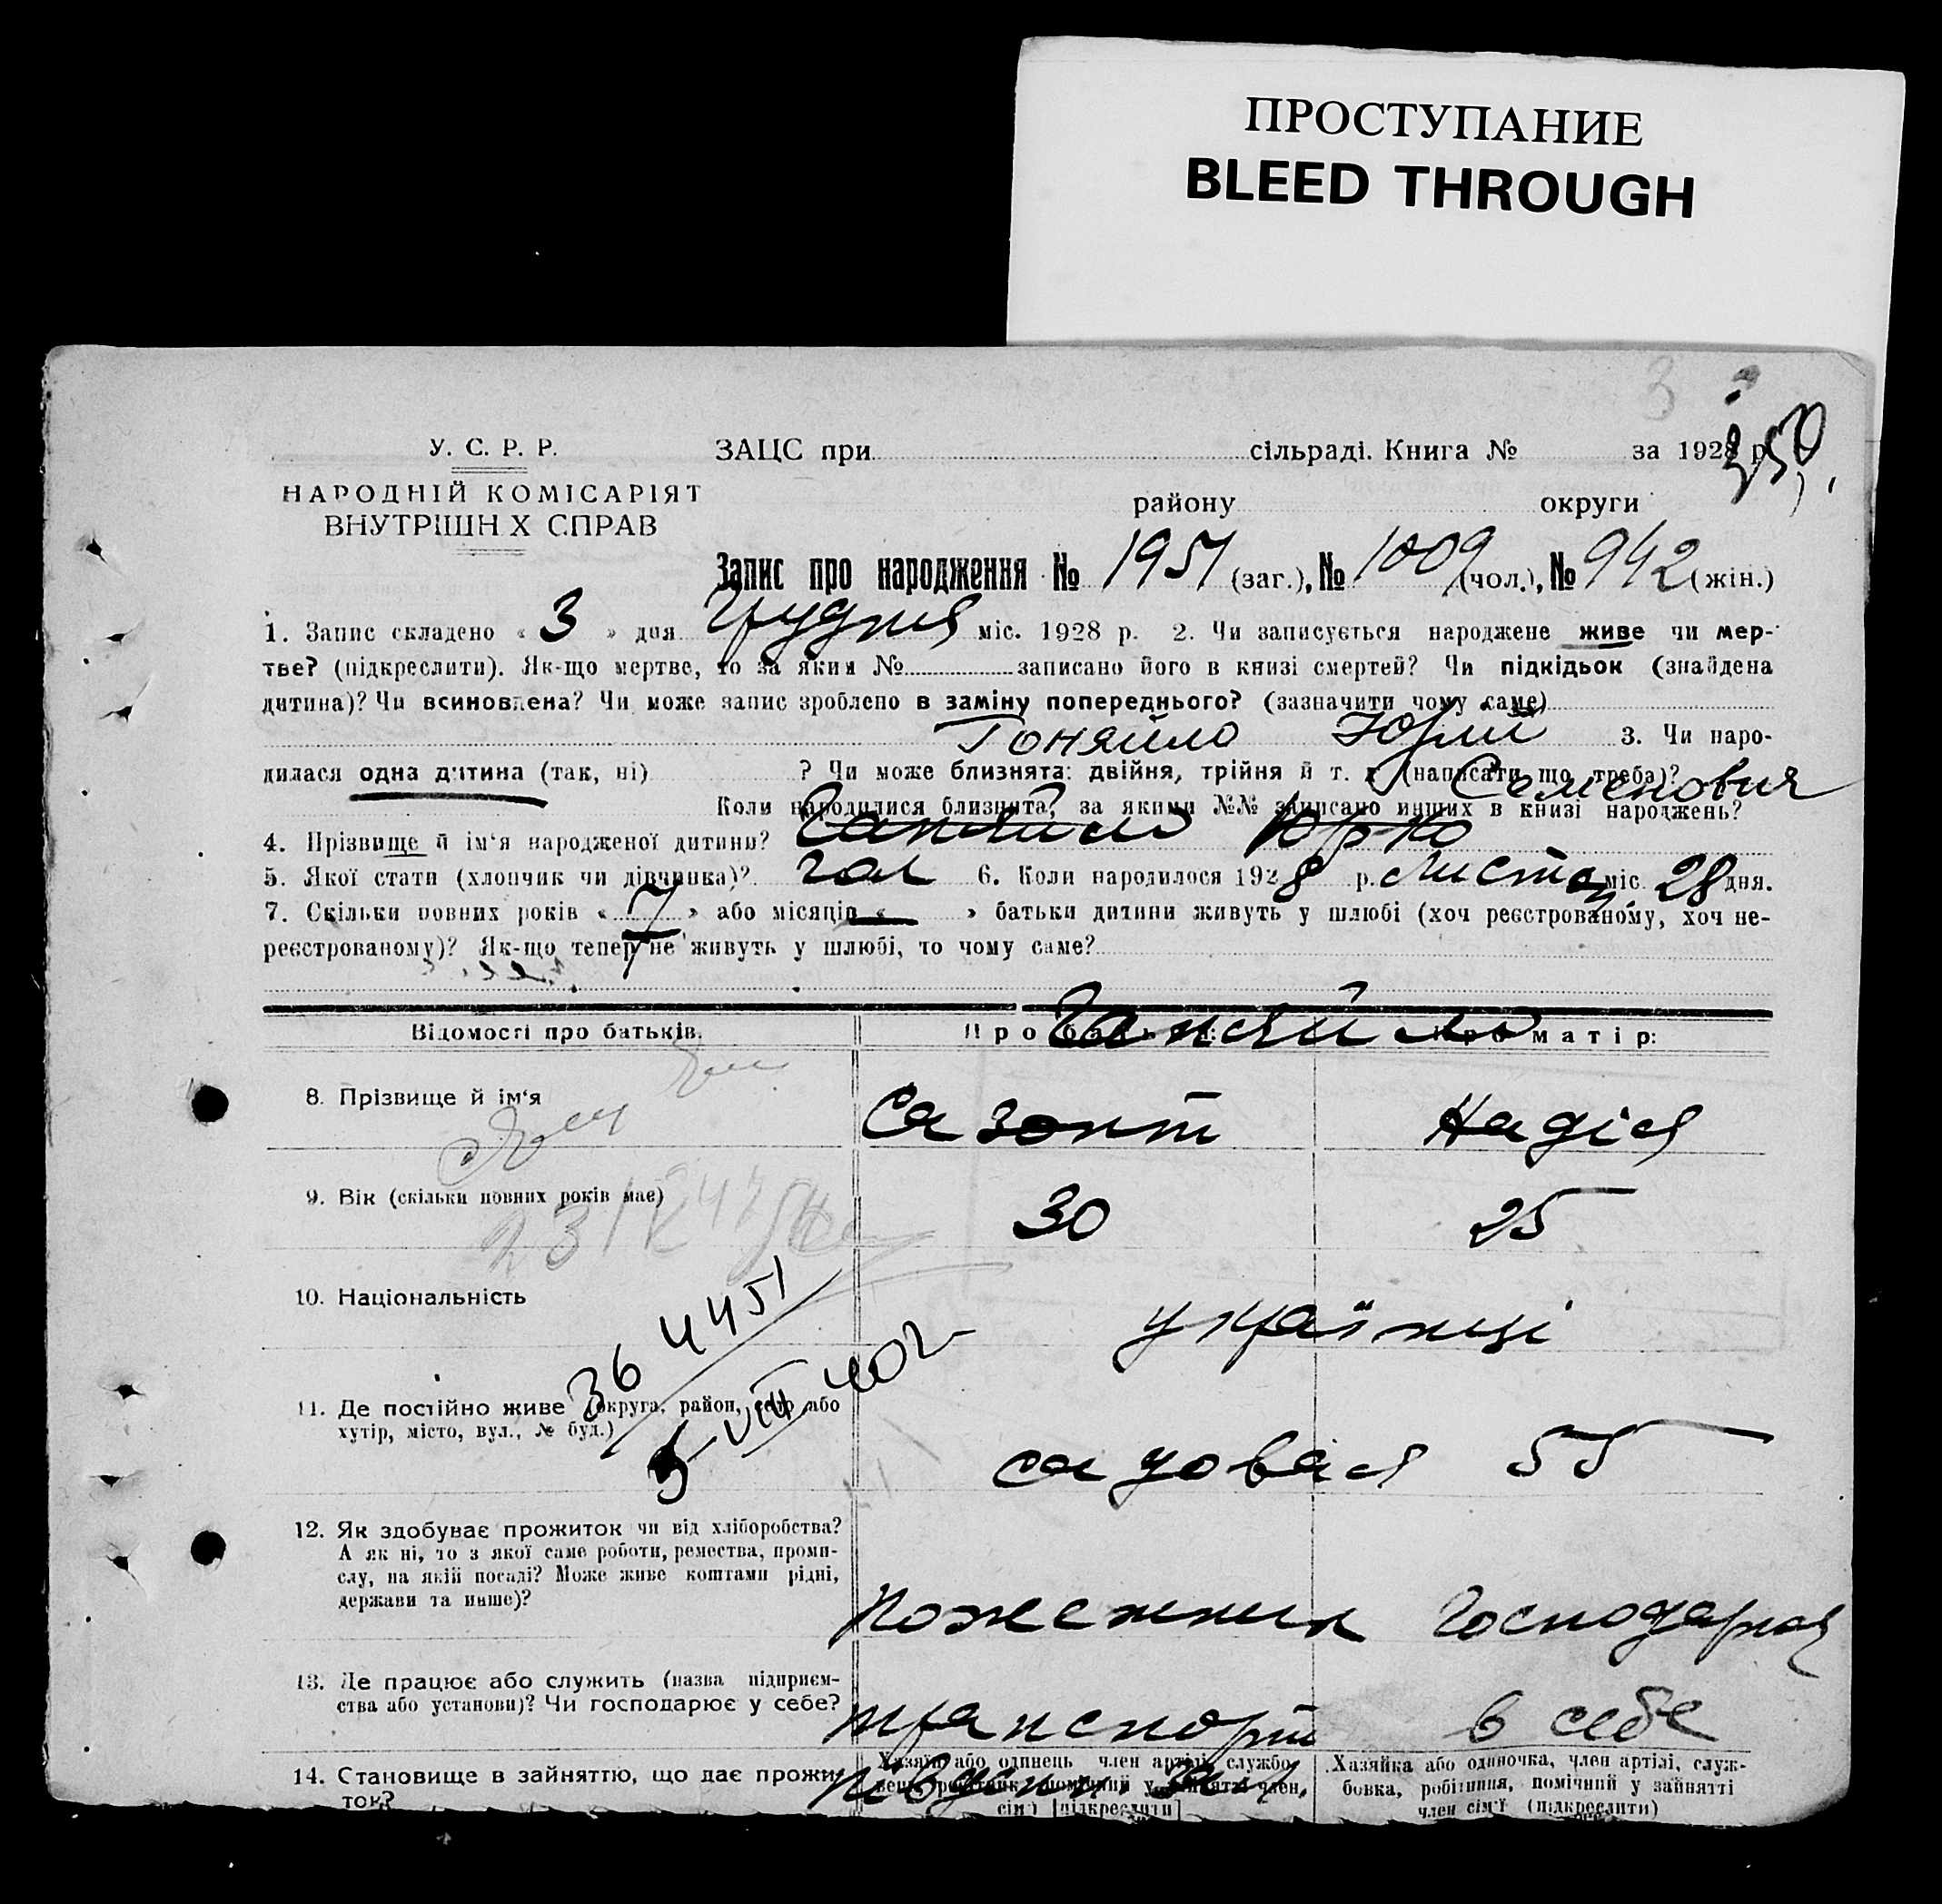 ПРОСТУПАНИЕ
BLEED THROUGH
3
350
У. С. Р. Р.
НАРОДНІЙ КОМІСАРІЯТ
ВНУТРІШН Х СПРАВ
ЗАЦС при сільраді. Книга № за 1928 р.
району округи
Запис про народження № 1951 (заг.), № 1009 (чол.), № 942 (жін.)
1. Запис складено « 3 » дня Грудня міс. 1928 р. 2. Чи записується народжене живе чи мер-
тве? (підкреслити). Як-що мертве, то за яким № записано його в книзі смертей? Чи підкідьок (знайдена
дитина)? Чи всиновлена? Чи може запис зроблено в заміну попереднього? (зазначити чому саме)
Гоняйло Юрий 3. Чи наро-
дилася одна дитина (так, ні) ? Чи може близнята: двійня, трійня й т. (написати що треба)?
Семенович
Коли народилися близнята? за якими №№ записано инших в книзі народжень?
4. Прізвище й ім'я народженої дитини? Ганяйло Юрко
5. Якої стати (хлопчик чи дівчинка)? чол 6. Коли народилося 1928 р. Листоп. міс. 28 дня.
7. Скільки повних років « 7 » або місяців « — » батьки дитини живуть у шлюбі (хоч реєстрованому, хоч не-
реєстрованому)? Як-що тепер не живуть у шлюбі, то чому саме?
Відомості про батьків. Про матір:
Ганяйло
8. Прізвище й ім'я Сазонт Надія
9. Вік (скільки повних років має) 30 25
10. Національність українці
36 4451
5 VIII 402
11. Де постійно живе (округа, район, село або
хутір, місто, вул., № буд.) садовая 55
12. Як здобуває прожиток чи від хліборобства?
А як ні, то з якої саме роботи, ремества, проми-
слу, на якій посаді? Може живе коштами рідні,
держави та инше)? Пожежник Господарка
13. Де працює або служить (назва підприєм-
ства або установи)? Чи господарює у себе? транспорт в себе
14. Становище в зайняттю, що дає прожи-
ток?
Хазяїн або одинець член артілі, службо-
сім'ї [підкреслити]
Хазяйка або одиночка, член артілі, служ-
бовка, робітниця, помічний у зайнятті
член сім'ї (підкреслити)